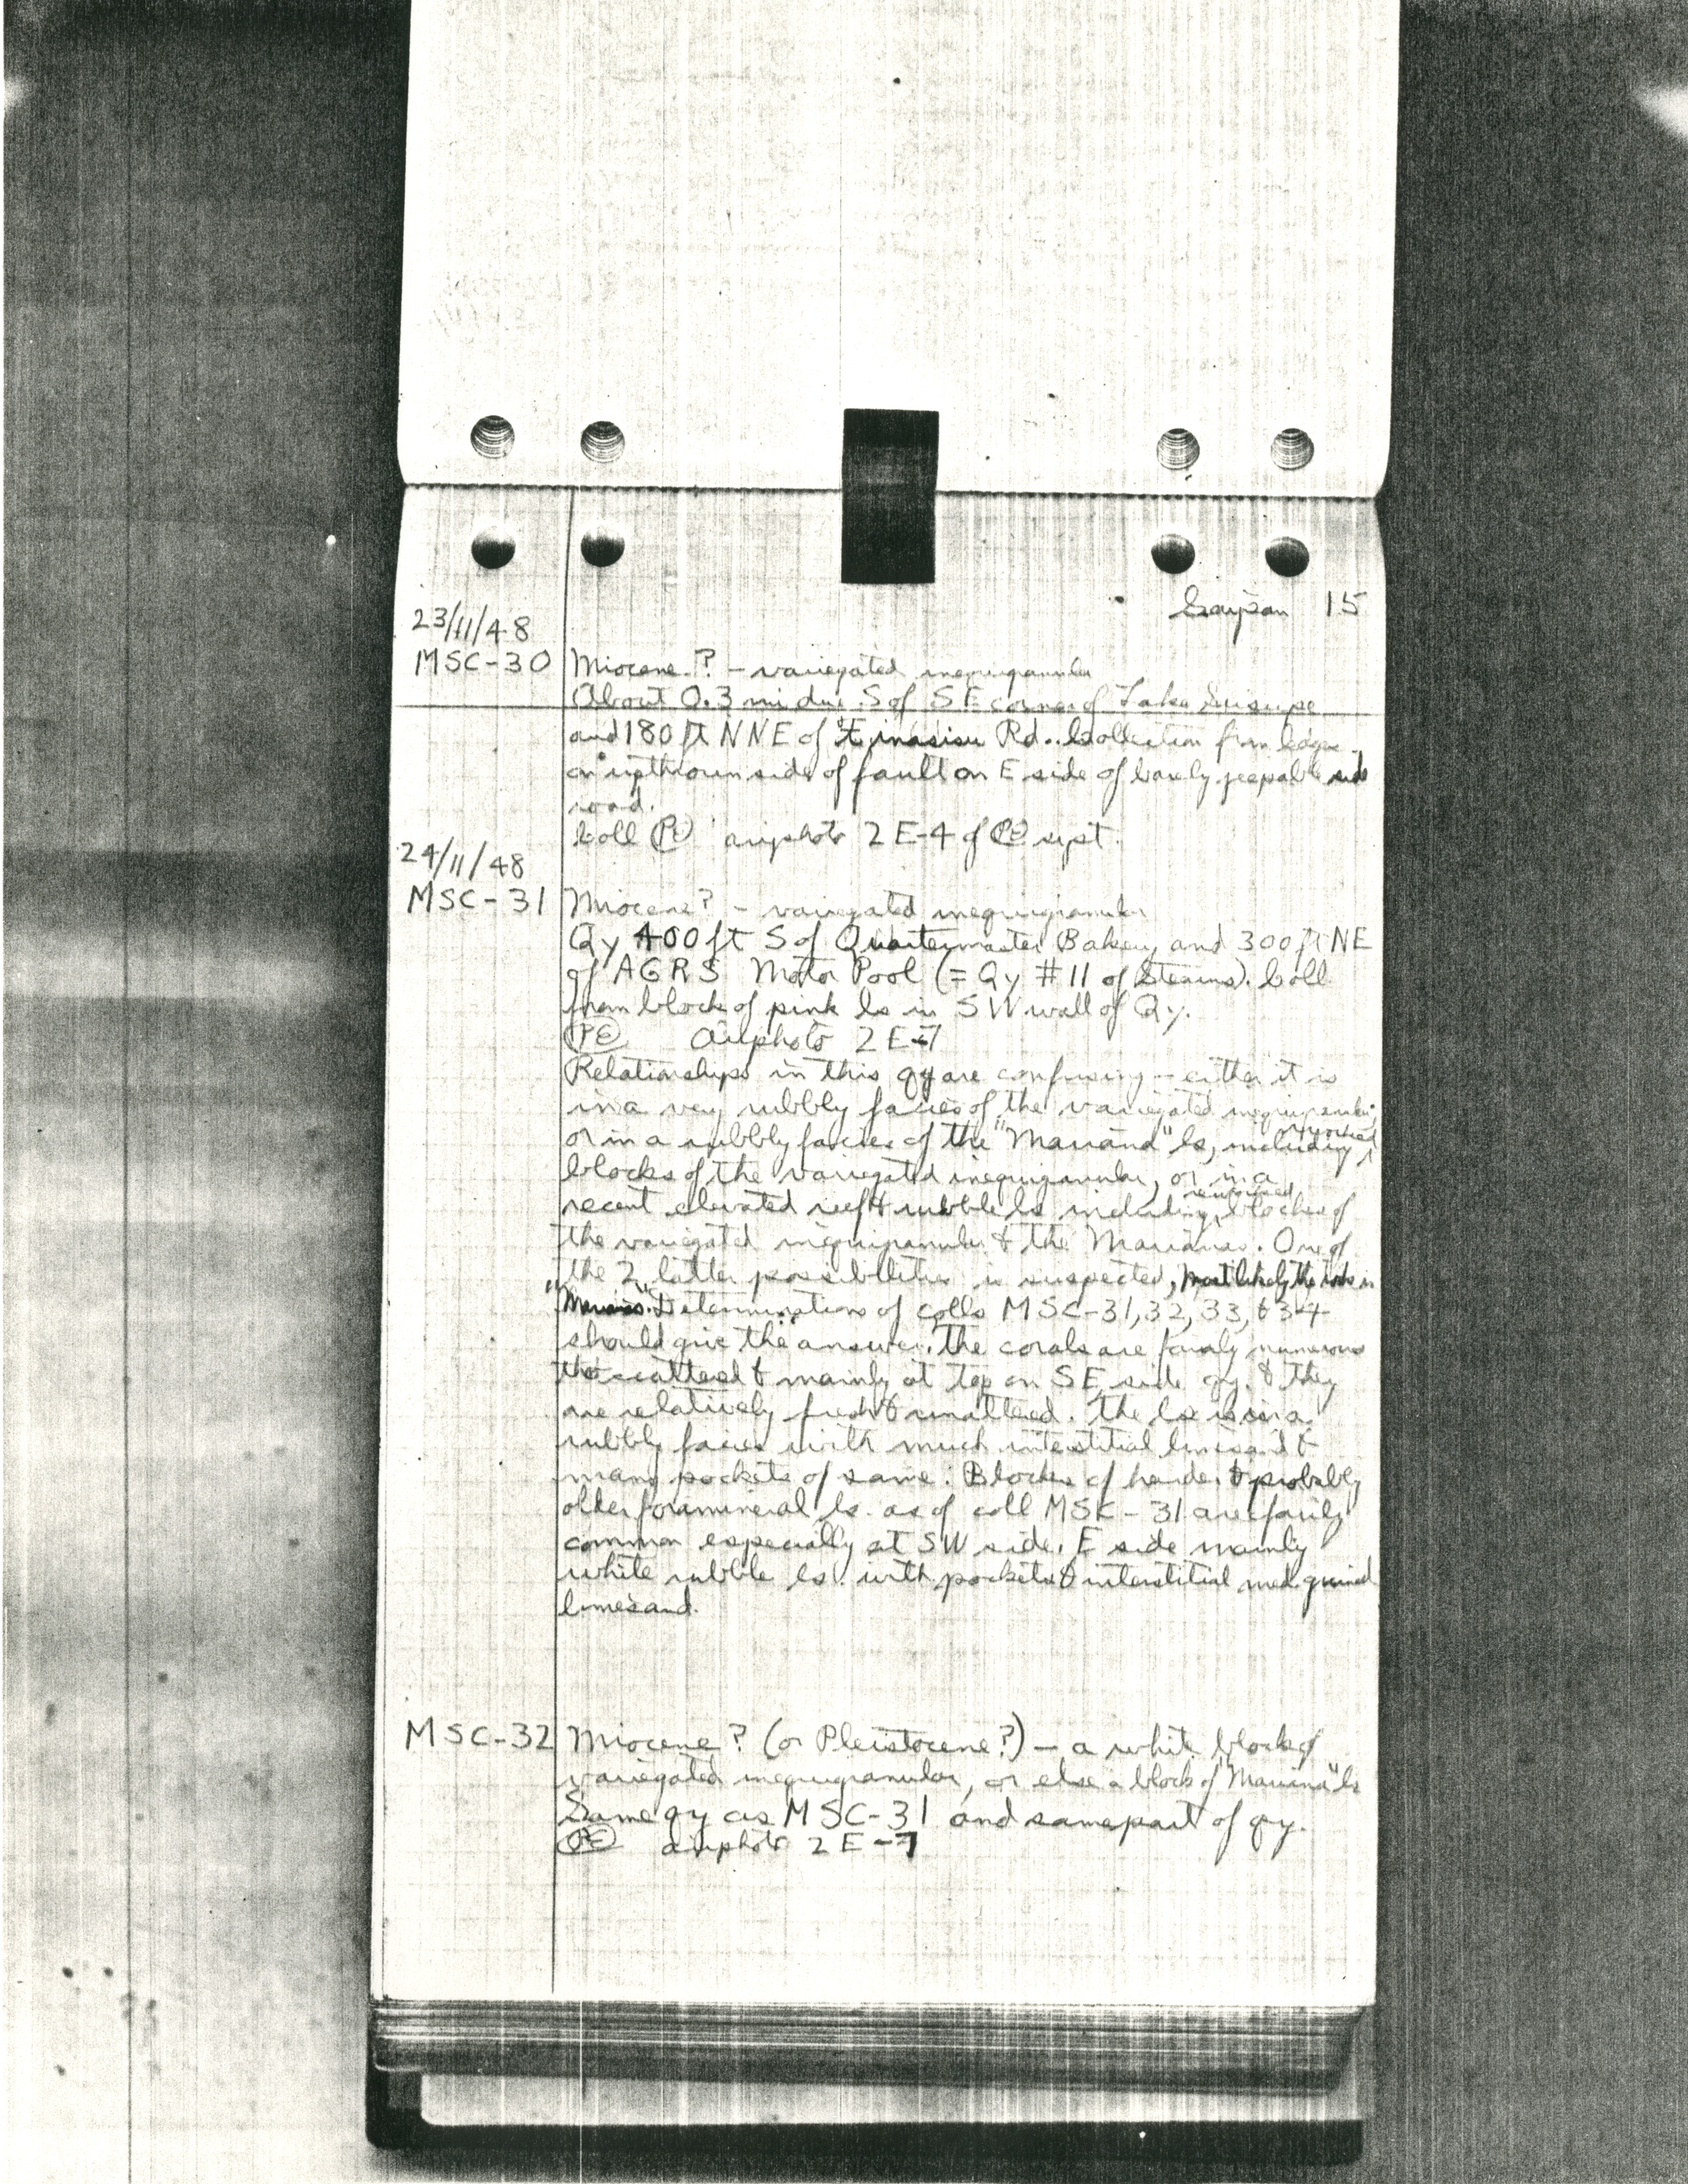 Saipan 15
23/11/48
MSC-30 Miocene? – variegated inequigranular
About 0.3 mi due S of SE corner of Lake Susupe
and 180 ft NNE of Rd. Collection from ledge
on upthrown side of fault on E side of barely jeepable side
road.
Coll PC airphoto 2E-4 of PC sept.
24/11/48
MSC-31 Miocene? – variegated inequigranular
Qy 400 ft S of Quartermaster Bakery and 300 ft NE
of AGRS Motor Pool (= Qy #11 of Stearns). Coll
from block of pink ls in SW wall of Qy.
PC Airphoto 2E-7
Relationships in this qy are confusing – either it is
in a very rubbly facies of the variegated inequigranular,
or in a rubbly facies of the "Mariana" ls, including reworked
blocks of the variegated inequigranular, or in a
recent elevated reef & rubble ls including reworked blocks of
the variegated inequigranular & the Marianas. One of
the 2 latter possibilities is suspected, most likely the
"Marianas". Determinations of colls MSC-31, 32, 33, & 34
should give the answer. The corals are fairly numerous
tho scattered & mainly at top on SE side qy. & they
are relatively fresh & unaltered. The ls is in a
rubbly facies with much interstitial limesand &
many pockets of same. Blocks of harder & probably
older foramineral ls. as of coll MSC-31 are fairly
common especially at SW side. E side mainly
white rubble ls. with pockets & interstitial med grained
limesand.
MSC-32 Miocene? (or Pleistocene?) – a white block of
variegated inequigranular, or else a block of "Mariana" ls
Same qy as MSC-31 and same part of qy.
PC airphoto 2E-7